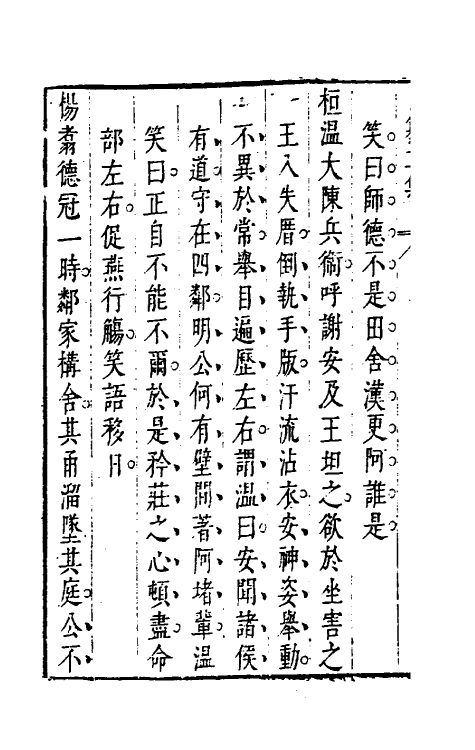 笑曰師德不是田舍漢更阿誰是
桓溫大陳兵衛呼謝安及王坦之欲於坐害之
王入失厝倒執手版汗流沾衣安神姿舉動
不異於常舉目遍歷左右謂溫曰安聞諸侯
有道守在四鄰明公何有壁間著阿堵輩溫
笑曰正自不能不爾於是矜莊之心頓盡命
部左右促燕行觴笑語移日
楊翥德冠一時鄰家構舍其甬溜墜其庭公不